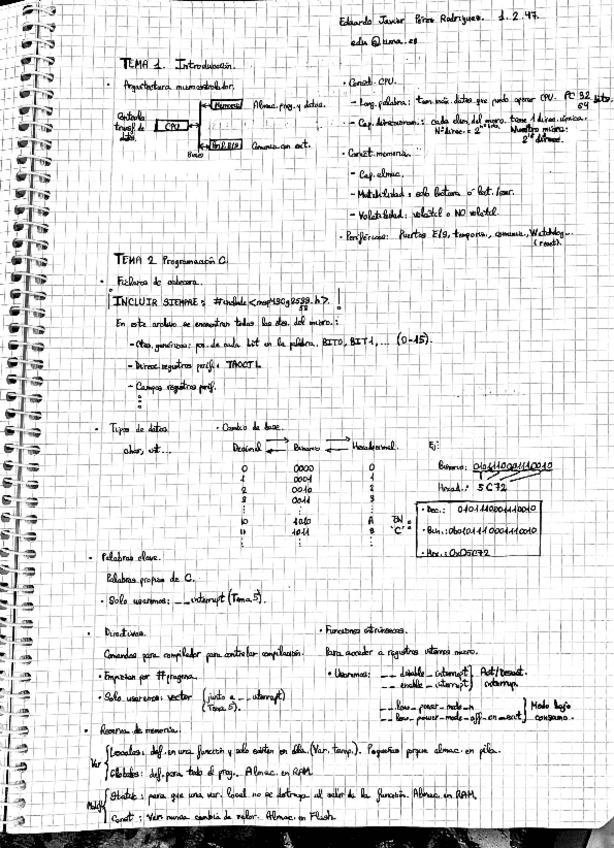 Eduardo Javier Pérez Rodríguez. 1.2.47.
edu@uma.es
TEMA 1. Introducción.
· Arquitectura microcontrolador.
Controla transf. de datos.
CPU
Memoria
Almac. prog. y datos.
Buses
Comunica con ext.
· Caract. CPU.
- Long. palabra: tam. máx. datos que puede operar CPU. PC 32 64 bits.
- Cap. direccionam.: cada elem. del micro. tiene 1 direc. única.
Nº direc. = 2
Nuestro micro:
· Caract. memoria.
- Cap. almac.
- Mutabilidad: solo lectura o lect./escr.
- Volatilidad: volátil o NO volátil.
· Periféricos: Puertos E/S, temporiz., comunic., Watchdog...
(reset).
TEMA 2 Programación C.
· Ficheros de cabecera.
INCLUIR SIEMPRE: #include <msp430g2533.h>. !
53
En este archivo se encuentran todas las des. del micro.:
- Ctes. genéricas: pos. de cada bit en la palabra, BIT0, BIT1,... (0-15).
- Direcc. registros perif.: TA0CTL
- Campos registros perif.
· Tipos de datos
char, int...
· Cambio de base.
Decimal Binario Hexadecimal.
0 0000 0
1 0001 1
2 0010 2
3 0011 3
10 1010 A
11 1011 B
Ej:
Binario: 0101110001110010
Hexad.: 5C72
EN "C":
· Dec.: 0101110001110010
· Bin.: 0b0101110001110010
· Hex.: 0x05C72
· Palabras clave.
Palabras propias de C.
· Solo usaremos: __interrupt (Tema 5).
· Directivas.
Comandos para compilador para controlar compilación.
· Empiezan por #pragma.
· Solo usaremos: vector (junto a __interrupt)
(Tema 5).
· Funciones intrínsecas.
Para acceder a registros internos micro.
· Usaremos: __disable_interrupt } Act/Desact.
__enable_interrupt } interrup.
__low_power_mode_n } Modo bajo
__low_power_mode_off_on_exit } consumo.
· Reserva de memoria.
Var
Locales: def. en una función y solo existen en ella (Var. temp.). Pequeñas porque almac. en pila.
Globales: def. para todo el prog. Almac. en RAM
Modif
Static: para que una var. local no se destruya al salir de la función. Almac. en RAM.
Const: Var. nunca cambia de valor. Almac. en Flash